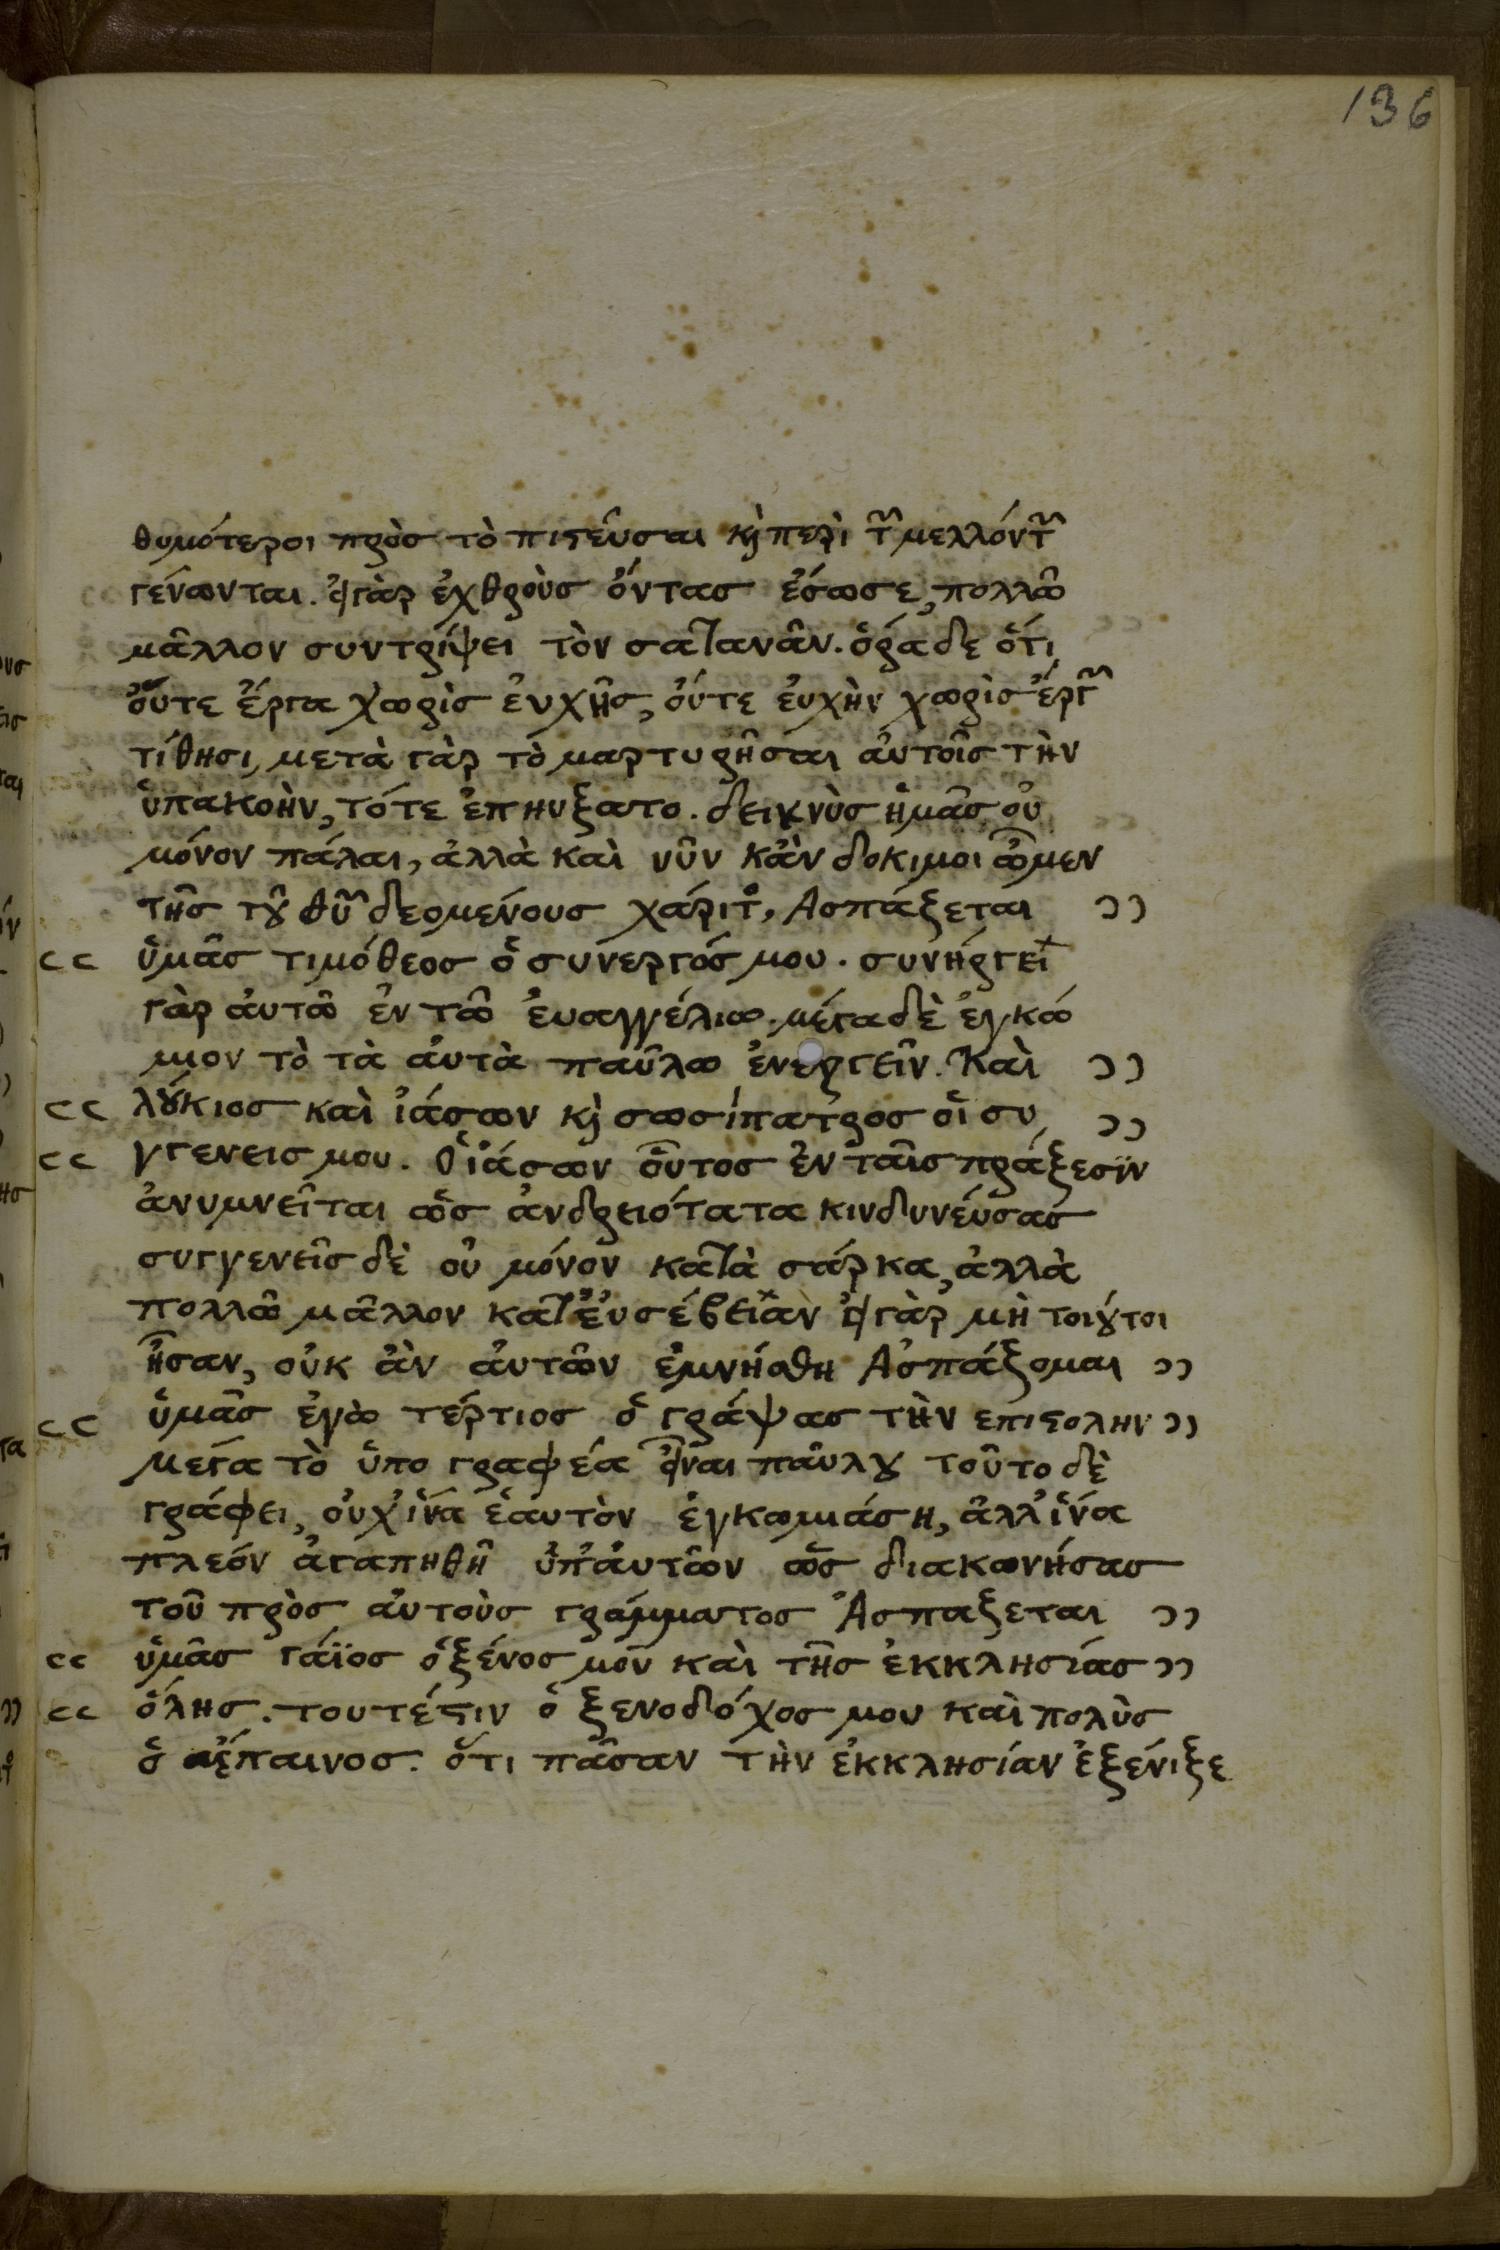 136
θυμότεροι πρὸσ τὸ πιϛεῦσαι κὶ περὶ τ῀ μελλόντ῀
γένωνται. εἰ γὰρ ἐχθροὺσ ὄντασ ἔσωσε, πολλῶ
μᾶλλον συντρίψει τὸν σατανᾶν. ὅρα δε ὅτι
οὔτε ἔργα χωρὶσ ἐυχῆσ, ὄυτε ἐυχὴν χωρὶσ ἔργ῀
τίθησι, μετὰ γὰρ τὸ μαρτυρῆσαι ἀυτοῖσ τὴν
ὑπακοὴν, τότε ἐπηυξατο. δεικνὺσ ἡμᾶσ οὐ
μόνον πάλαι, ἀλλὰ καὶ νῦν κἀν δοκιμοι ὦμεν
τῆσ τȣ͂ θυ῀ δεομένουσ χάριτο, Ασπάζεται ››
‹‹ ὑμᾶσ τιμόθεοσ ὁ συνεργόσ μου. συνήργει
γὰρ ἀυτῶ ἐν τῶ ἐυαγγέλιω. μέγα δὲ ἐγκώ
μιον τὸ τὰ ἀυτὰ παῦλω ἐνεργεῖν. Καὶ ››
‹‹ λȣ́κιοσ καὶ ἰάσων κὶ σωσίπατροσ οἱ συ ››
‹‹ γγενεισ μου. Ὁ ἰάσων οὗτοσ ἐν ταῖσ πράξεσϊν
ἀνυμνεῖται ὡσ ἀνδρειότατα κινδυνέυσασ
συγγενεῖσ δὲ οὐ μόνον κατὰ σάρκα, ἀλλὰ
πολλῶ μᾶλλον κατ ἐυσέβειαν εἰ γὰρ μὴ τοιȣ́τοι
ἦσαν, οὐκ ἀν ἀυτῶν ἐμνήσθη Ἀσπάζομαι ››
‹‹ ὑμᾶσ ἐγὼ τέρτιοσ ὁ γράψασ τὴν επιϛολην ››
μεγα τὸ ὑπο γραφέα εἶναι παύλȣ τοῦτο δὲ
γράφει, οὐχ ἵνα ἑαυτὸν ἐγκωμιάση, ἀλλ ἵνα
πλεόν ἀγαπηθῆ ὑπ ἀυτῶν ὡσ διακονήσασ
τοῦ πρὸσ αὐτοὺσ γράμματοσ Ἀσπαζεται ››
‹‹ ὑμᾶσ γάϊοσ ὁ ξένοσ μου καὶ τῆσ ἐκκλησίασ ››
‹‹ ὅλησ. τουτέϛιν ὁ ξενοδόχοσ μου καὶ πολὺσ
ὁ ἔπαινοσ. ὅτι πᾶσαν τὴν ἐκκλησίαν ἐξένιζε